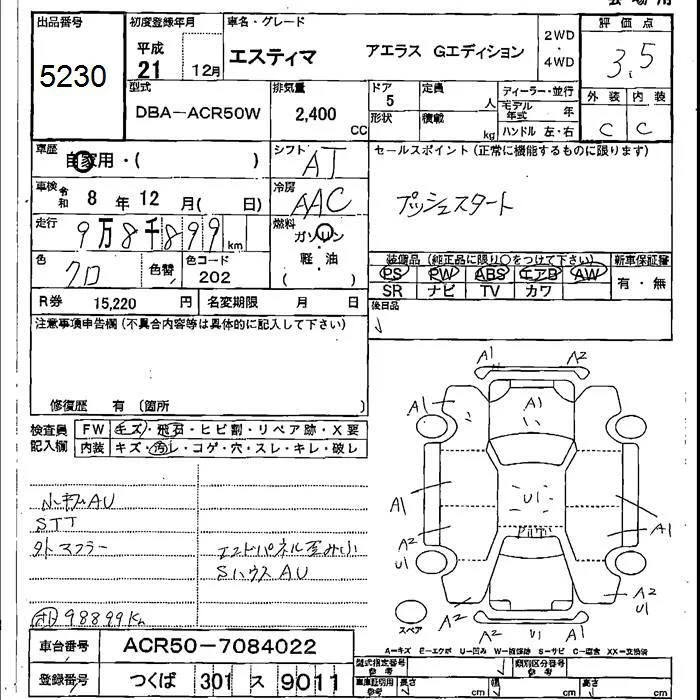 出品番号 初度登録年月 車名・グレード 2WD・4WD 評価点
5230 平成 21 12月 エスティマ アエラス Gエディション 3.5
型式 排気量 ドア 5 定員 人 ディーラー・並行 外装 内装
DBA-ACR50W 2,400 CC 形状 積載 kg モデル年式 年 C C
ハンドル 左・右
車歴 自家用・( ) シフト AT セールスポイント (正常に機能するものに限ります)
車検 令和 8 年 12 月( 日) 冷房 AAC プッシュスタート
走行 9万8千899 km 燃料 ガソリン
軽・油
( )
色 クロ 色替 色コード 202
装備品 (純正品に限り○をつけて下さい) 新車保証書
PS PW ABS エアB AW 有・無
SR ナビ TV カワ
R券 15,220 円 名変期限 月 日 後日品
注意事項申告欄 (不具合内容等は具体的に記入して下さい)
修復歴 有 (箇所 )
検査員 FW キズ・飛石・ヒビ割・リペア跡・X要
記入欄 内装 キズ・汚レ・コゲ・穴・スレ・キレ・破レ
A1 A2
A1 A1 A1
A1 U1 A1
A2
U1 A2
U1
A2 U1 A1
スペア
AU
STT
外マフラー エンドパネル歪み小
Sハウス AU
98899Km
A=キズ E=エクボ U=凹み W=補修跡 S=サビ C=腐食 XX=交換済
車台番号 ACR50-7084022 型式指定番号 類別区分番号
登録番号 つくば 301 ス 9011 長さ cm 幅 cm 高さ cm